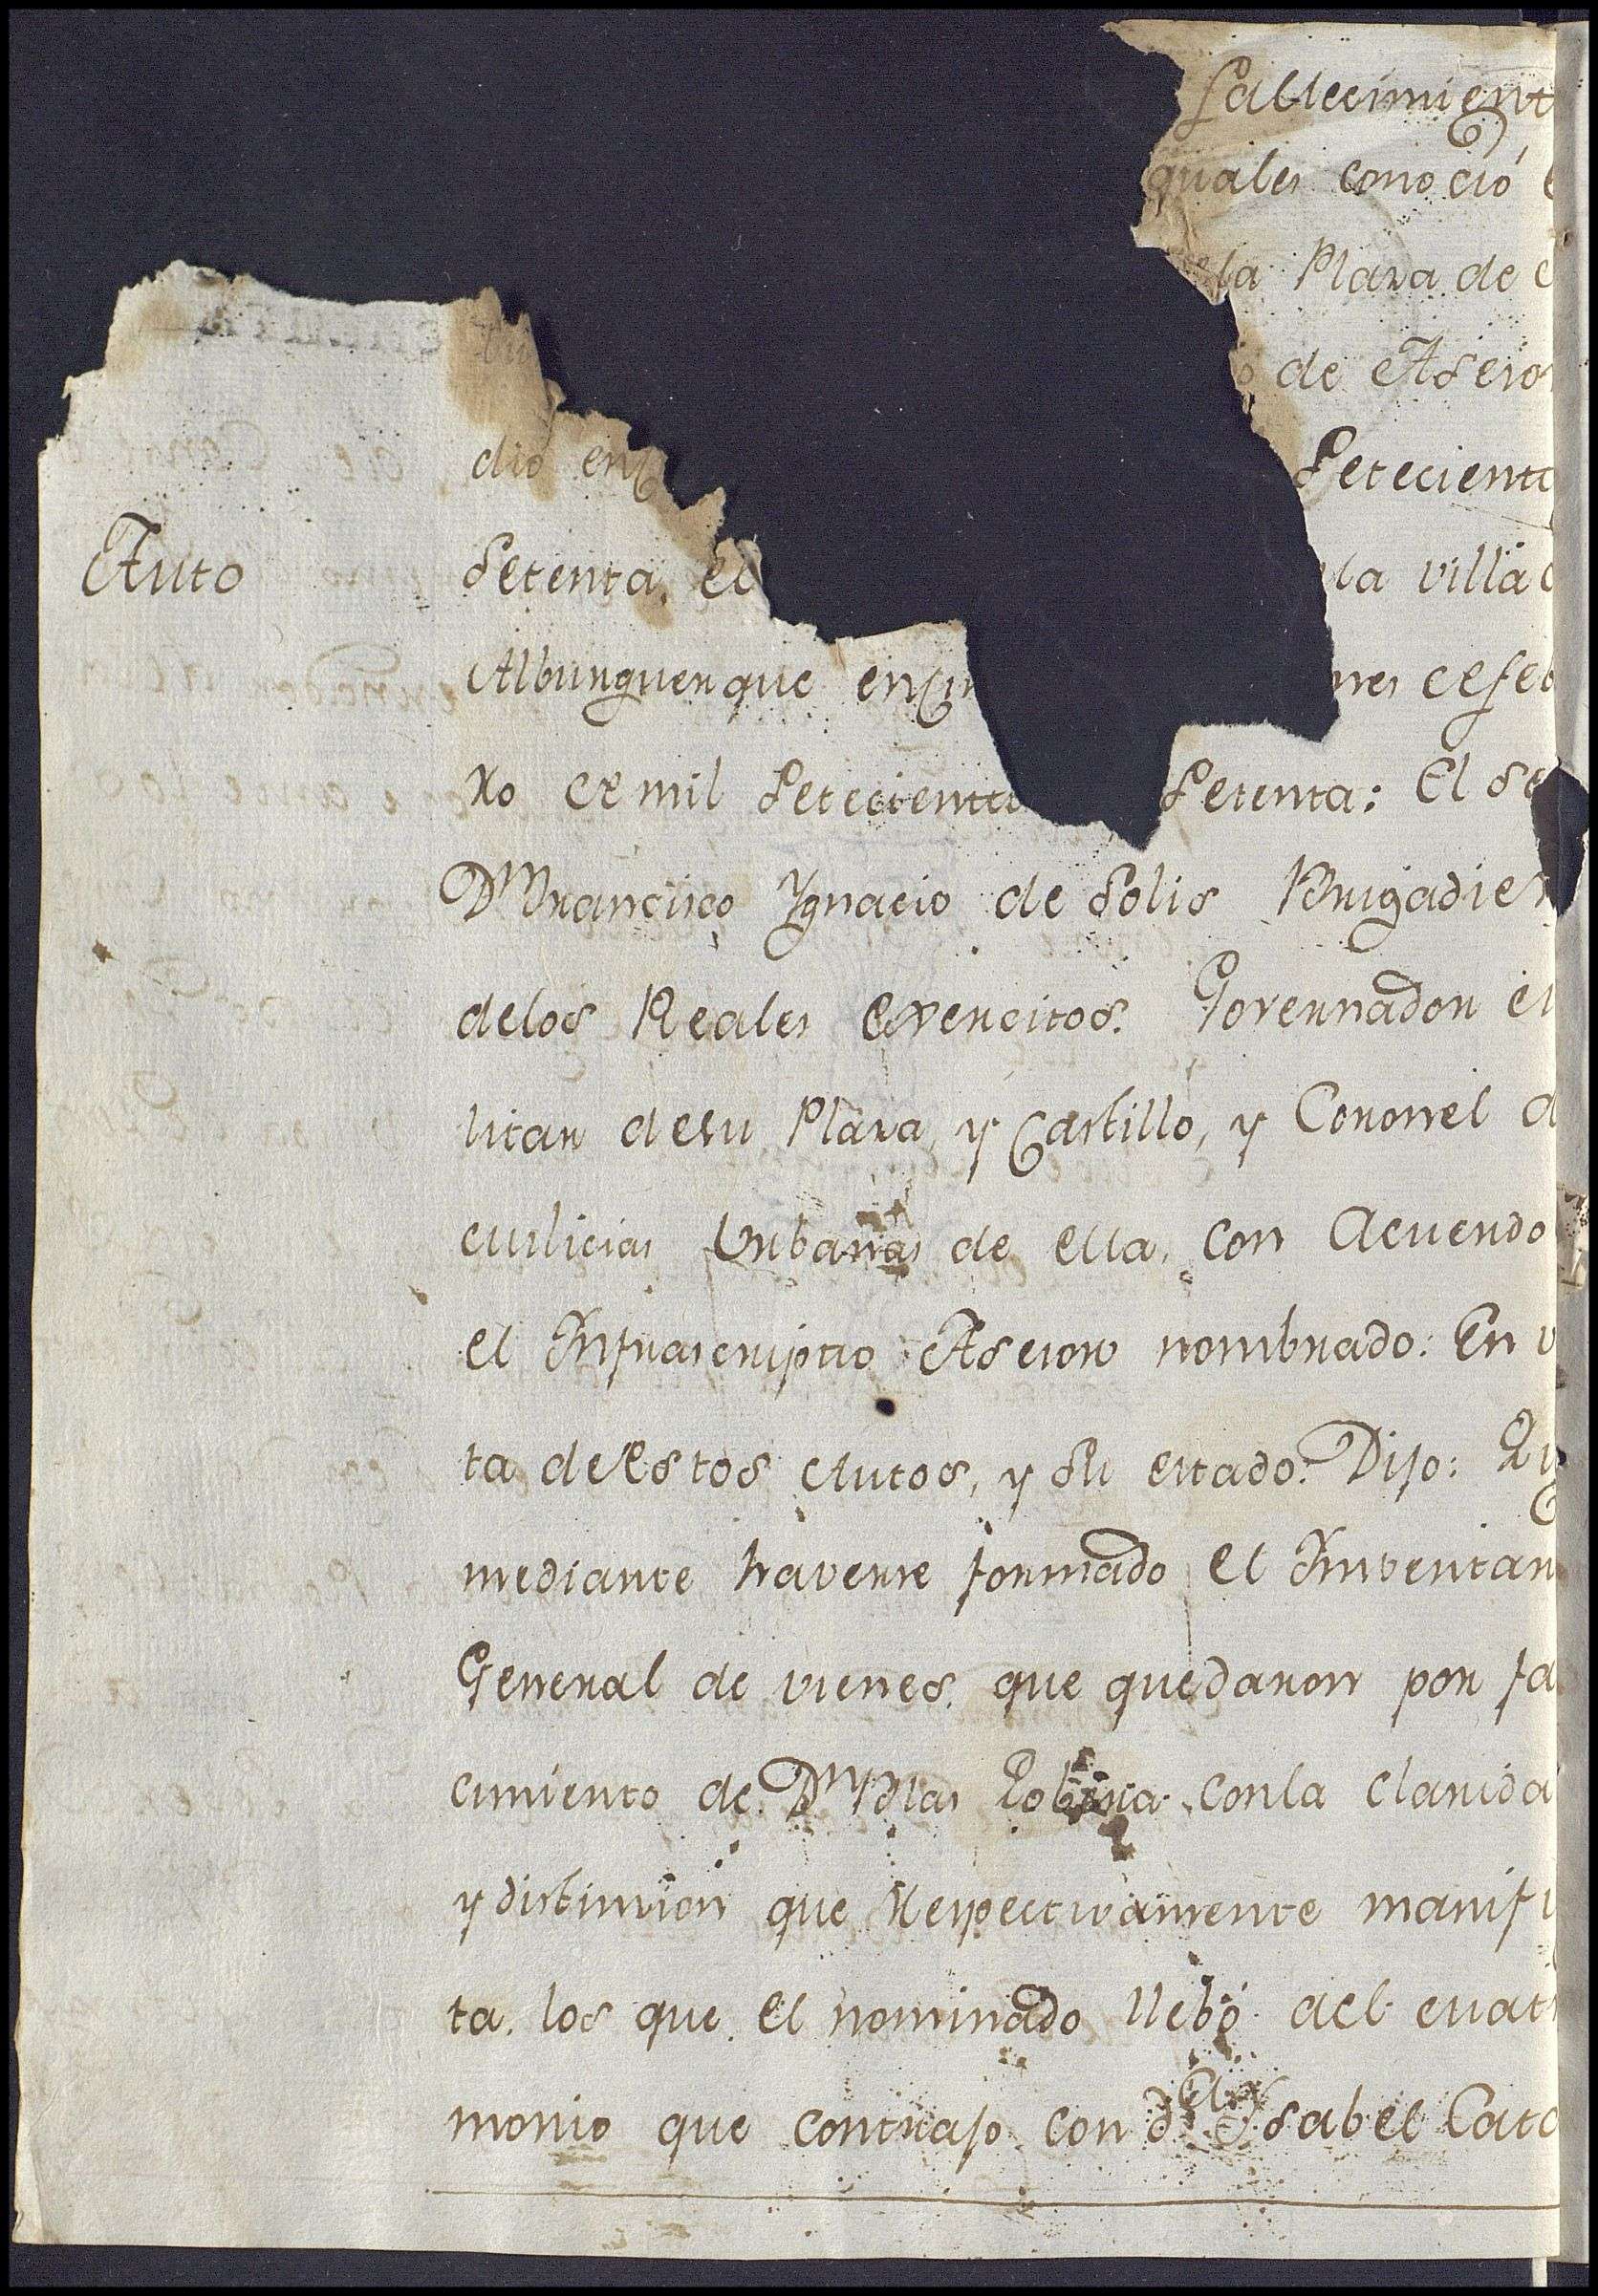 fallecimient
quales conoció
la Plaza de
de Asesor
dio en Setecient
Auto
Setenta el la villa
Alburquerque en cin nes de feb
ro de mil Setecient Setenta: El Se
Dn Francisco Ygnacio de Solis Brigadier
delos Reales exercitos. Governador
litar desu Plaza, y Castillo, y Coronel d
Milicias Urbanas de ella, con Acuerdo
el Infrascripto Asesor nombrado: En v
ta deestos Autos, y su estado. Dijo: Qu
mediante haverse formado el Imbentari
General de vienes que quedaron por fa
cimiento de Dn Blas con la clarida
y distinzion que Respectivamente manif
ta. los que el nominado llebó ael Mat
monio que contrajo con da Ysabel